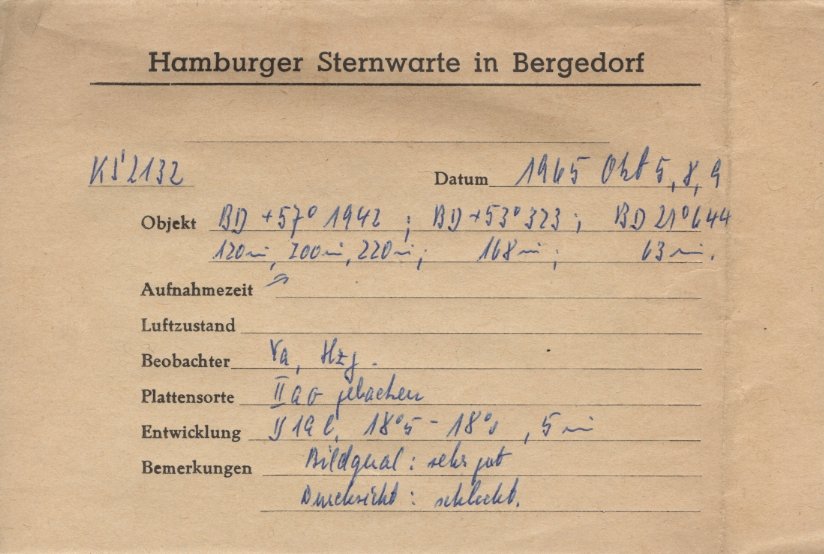 Hamburger Sternwarte in Bergedorf
KS 2132 Datum 1965 Okt 5, 8, 9
Objekt BD +57° 1942 ; BD +53° 323 ; BD 21° 644
120m, 200m, 220m; 168m; 63m.
Aufnahmezeit
Luftzustand
Beobachter Va, Hzg.
Plattensorte II a O gebacken
Entwicklung D 19 b, 18°5 - , 5 m
Bemerkungen Bildqual : sehr gut
Durchsicht : schlecht.